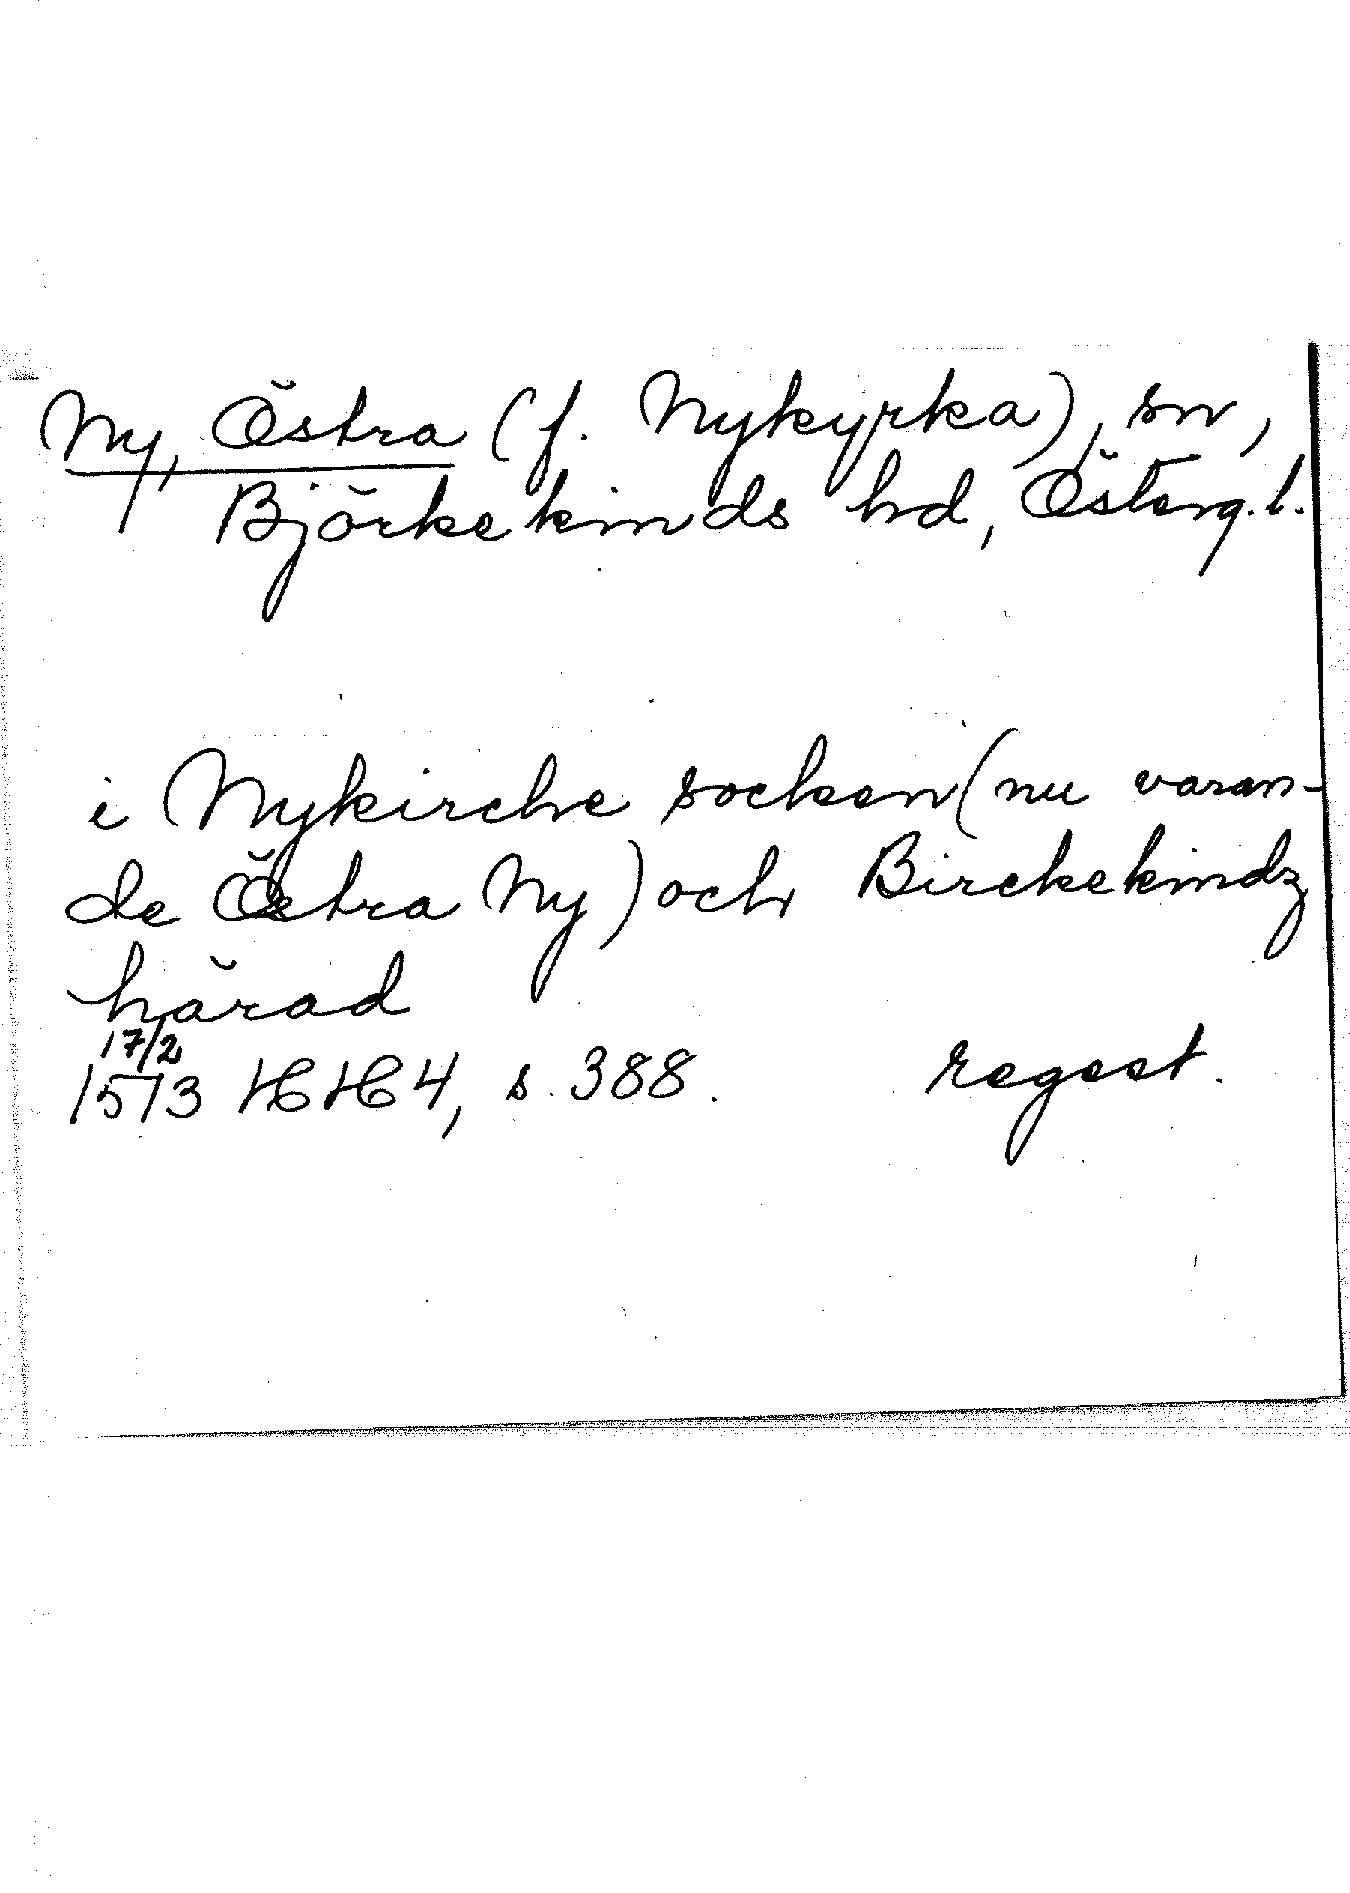 Ny, Östra (f. Nykyrka), sn,
Björkekinds hd, Österg.l.
i Nykirche socken (nu varan-
de Östra Ny) och Birckekindz
härad
17/2
1573 HH 4, s. 388. regest.